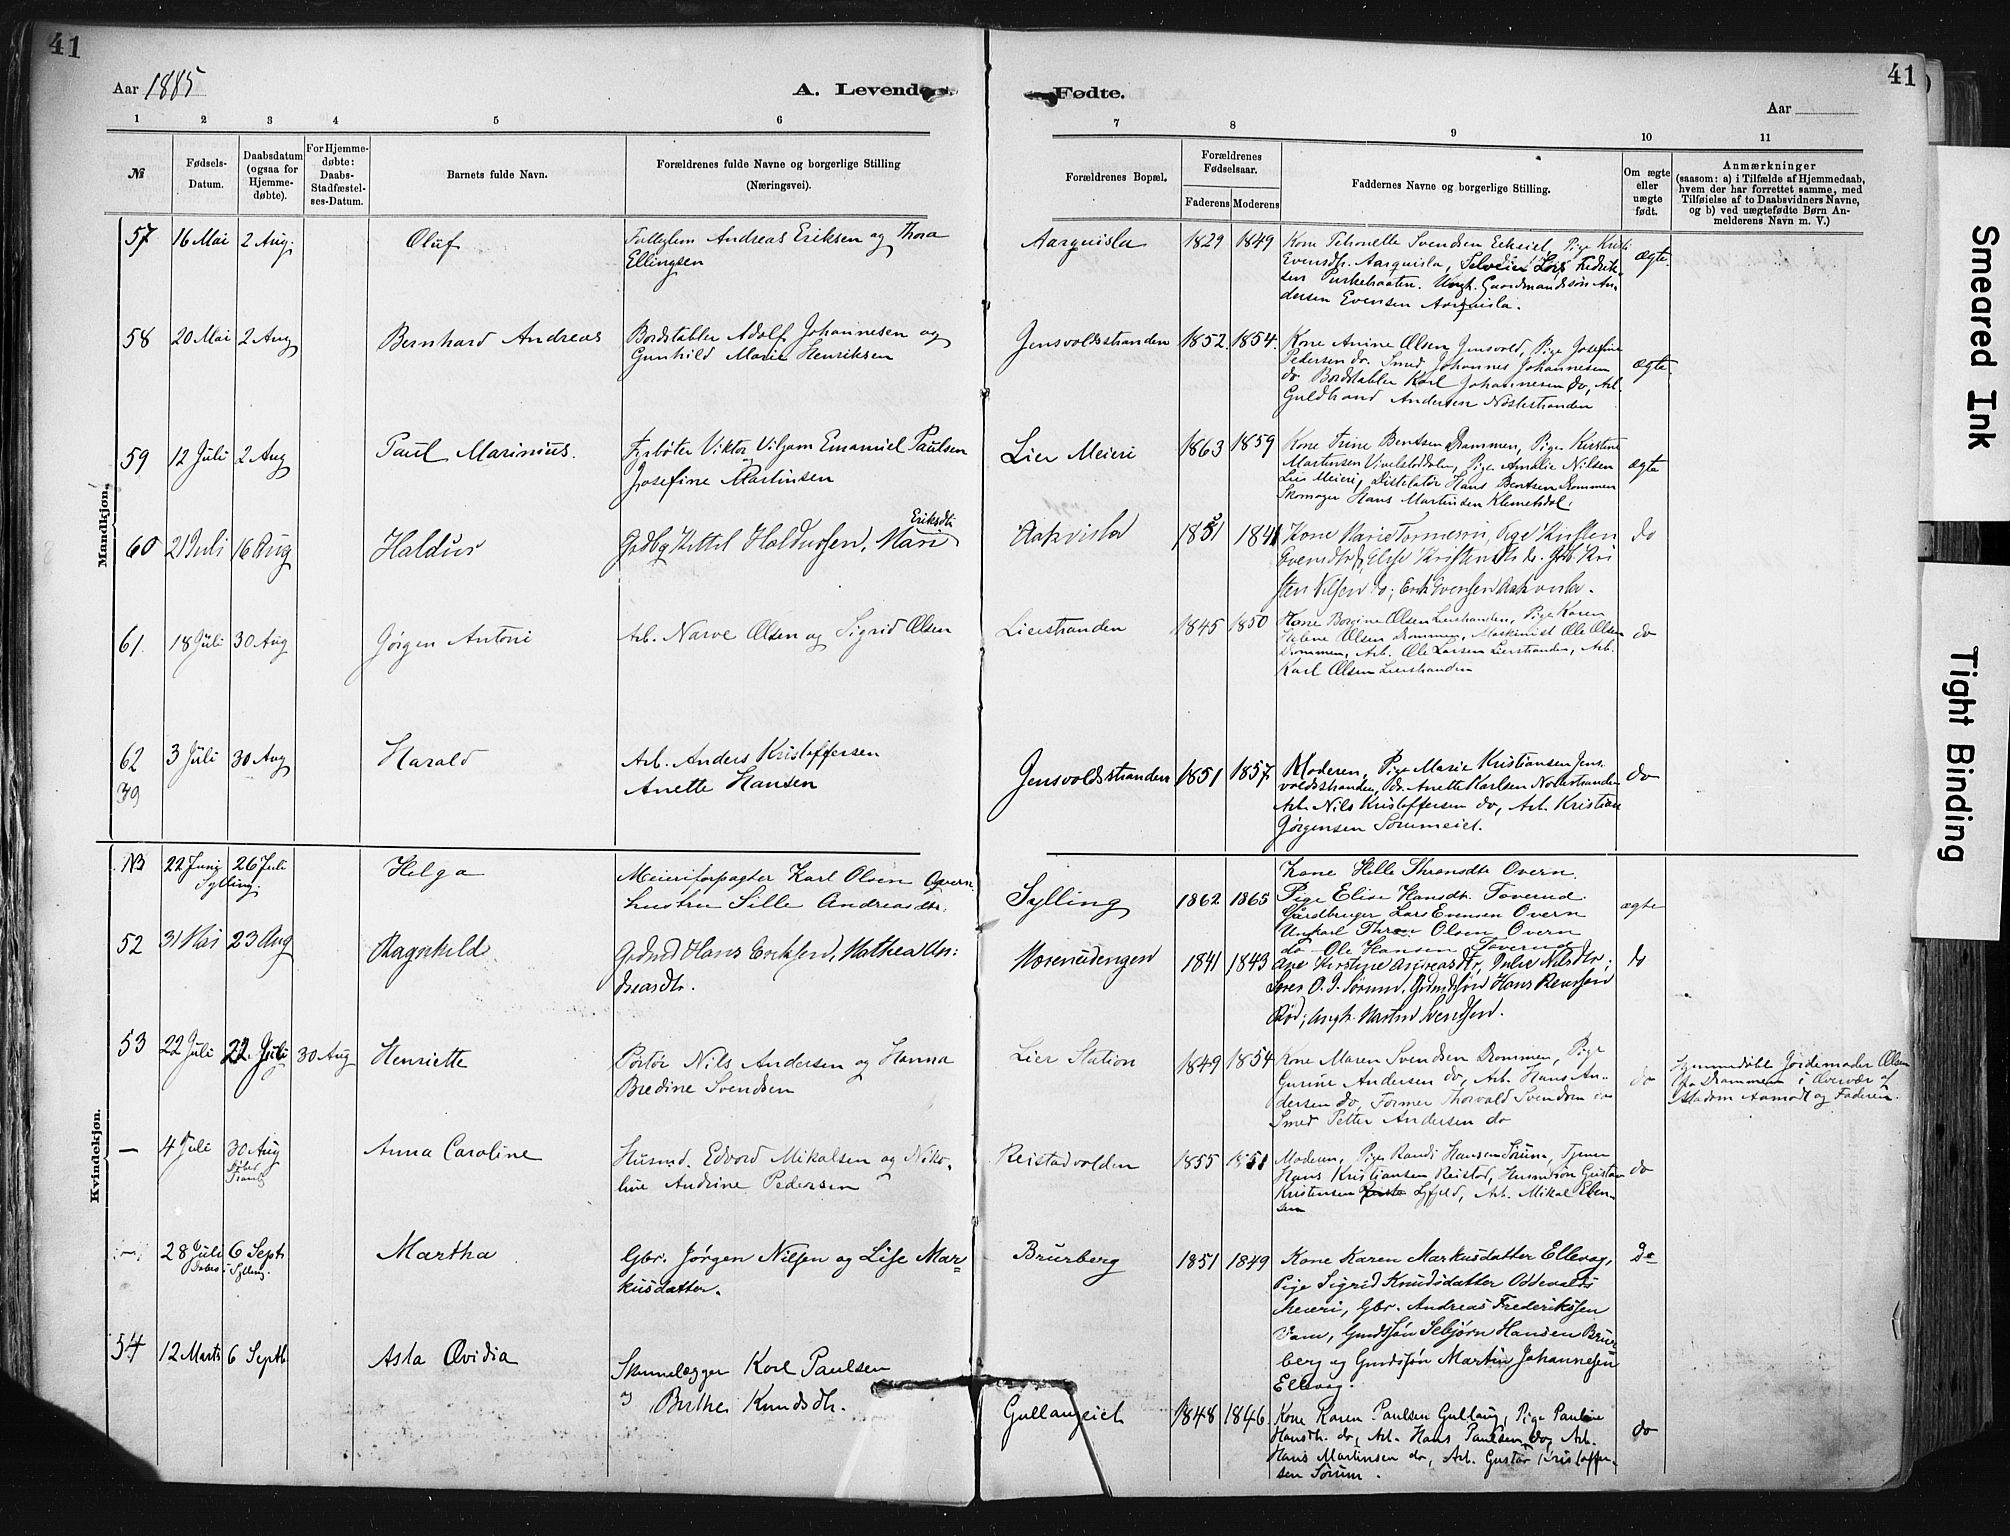 41
Aar 1885
A. Levende
Fødte.
Aar
41
1
2
3
4
5
6
7
8
9
10
11
№
Fødsels-
Datum.
Daabsdatum
(ogsaa for
Hjemme-
døbte).
For Hjemme-
døbte:
Daabs-
Stadfæstel-
ses-Datum.
Barnets fulde Navn.
Forældrenes fulde Navne og borgerlige Stilling
(Næringsvei).
Forældrenes Bopæl.
Forældrenes
Fødselsaar.
Faderens
Moderens
Faddernes Navne og borgerlige Stilling.
Om ægte
eller
uægte
født.
Anmærkninger
(saasom: a) i Tilfælde af Hjemmedaab,
hvem der har forrettet samme, med
Tilføielse af to Daabsvidners Navne,
og b) ved uægtefødte Børn An-
melderens Navn m. V.)
Mandkjøn.
57 16 Mai 2 Aug. Oluf
Andreas Eriksen og Thora
Ellingsen
Aarquisla 1829 1849
Kone Petronelle Svendsen Pige
Evensdtr. Aarquisla, Lars Fredrik-
sen Ungk. Gaardmandssøn An-
dersen Evensen Aarquisla.
ægte.
58 20 Mai 2 Aug Bernhard Andreas
Bordstabler Adolf Johannesen og
Gunhild Marie Henriksen
Gensvoldsstranden 1852. 1854.
Kone Anine Olsen Gensvold, Pige Josefine
Pedersen do. Smed Johannes Johannesen
do Bordstabler Karl Johannesen do, Arb.
Guldbrand Andersen Nøstestranden
ægte.
59 12 Juli 2 Aug Paul Marinius.
Fyrbøter Viktor Viljam Emanuel Paulsen
Josefine Martinsen
Lier Meieri 1863 1859
Kone Trine Bentsen Drammen, Pige Kristine
Martinsen Pige Amalie Nilsen
Lier Meieri, Distilatør Hans Bentsen Drammen
Skomager Hans Martinsen Klemetsdal.
ægte
60 21 Juli 16 Aug Haldus
Kittel Haldussen, Mari Eriksdtr
Aakvisla 1841
Kone Marie Pige Kirsten
Evensdtr, Else Kristensdtr do.
sten Nilsen do; Erik Evensen Aakvisla.
do
61. 18 Juli 30 Aug Jørgen Antoni
Arb. Narve Olsen og Sigrid Olsen
Lierstranden 1845 1850
Kone Bergine Olsen Lierstranden, Pige Karen
Halene Olsen Drammen, Maskinist Ole Olsen
Drammen, Arb. Ole Larsen Lierstranden, Arb.
Karl Olsen Lierstranden
do
62 3 Juli 30 Aug Harald
39
Arb. Anders Kristoffersen
Anette Hansen
Gensvoldsstranden 1851 1857
Moderen, Pige Marie Kristiansen Gens-
voldsstranden, do. Anette Karlsen Nøstestranden
Arb. Nils Kristoffersen do, Arb. Kristian
Jørgensen Sørumeiet.
do
Kvindekjøn.
NB 22 Juni 26 Juli Helga
Sylling.
Meieriforpagter Karl Olsen Overn
hustru Sille Andreasdtr.
Sylling 1862 1865
Kone Helle Thronsdtr Overn.
Pige Elise Hansdtr. Toverud.
Gårdbruger Lars Evensen Overn
Ungkarl Thron Olsen Overn
do Ole Hansen Toverud
ægte
52 31 Mai 23 Aug Ragnhild.
Hans Eriksen, Mathea An-
dreasdtr.
1841 1843
Ane Kirstine Andreasdtr, Julie Nilsdtr;
O. J. Sørum, Hans
Rød; Ungk. Martin Svendsen.
do
53 22 Juli 22 Juli 30 Aug Henriette
Portør Nils Andersen og Hanna
Bredine Svendsen
Lier Station 1849 1854
Kone Maren Svendsen Drammen, Pige
Gurine Andersen do, Arb. Hans An-
dersen do, Former Thorvald Svendsen do
Smed Petter Andersen do
do
Hjemmedøbt Jordemoder Olsen
fra Drammen i Overvær af
Madam Aamodt og Faderen.
— 4 Juli 30 Aug Anna Caroline
Husmd. Edvard Mikalsen og Niko-
line Andrine Pedersen
Reistadvolden 1855 1851
Moderen, Pige Randi Hansen Sørum, Tjener
Hans Kristiansen Reistad, Husmdsøn Gustav
Kristensen Arb. Mikal Eben-
sen
do
— 28 Juli 6 Sept Martha
Døbt i Sylling.
Gbr. Jørgen Nilsen og Lise Mar-
kusdatter.
Brurberg 1851 1849
Kone Karen Markusdatter Ellevag,
Pige Sigrid Knudsdatter Oddevalds
Meieri, Gbr. Andreas Frederikssen
Gmdssøn Sebjørn Hansen Brur-
berg og Gmdssøn Martin Johannesen
Ellevag.
Do
54 12 Marts 6 Septb. Asta Ovidia
Karl Paulsen
og Birthe Knudsdtr.
Gullaugeiet 1848 1846.
Kone Karen Paulsen Gullaug, Pige Pauline
Hansdtr. do, Arb. Hans Paulsen do, Arb.
Hans Martinsen do, Arb. Gustav Kristoffer-
sen Sørum.
do
Smeared Ink
Tight Binding